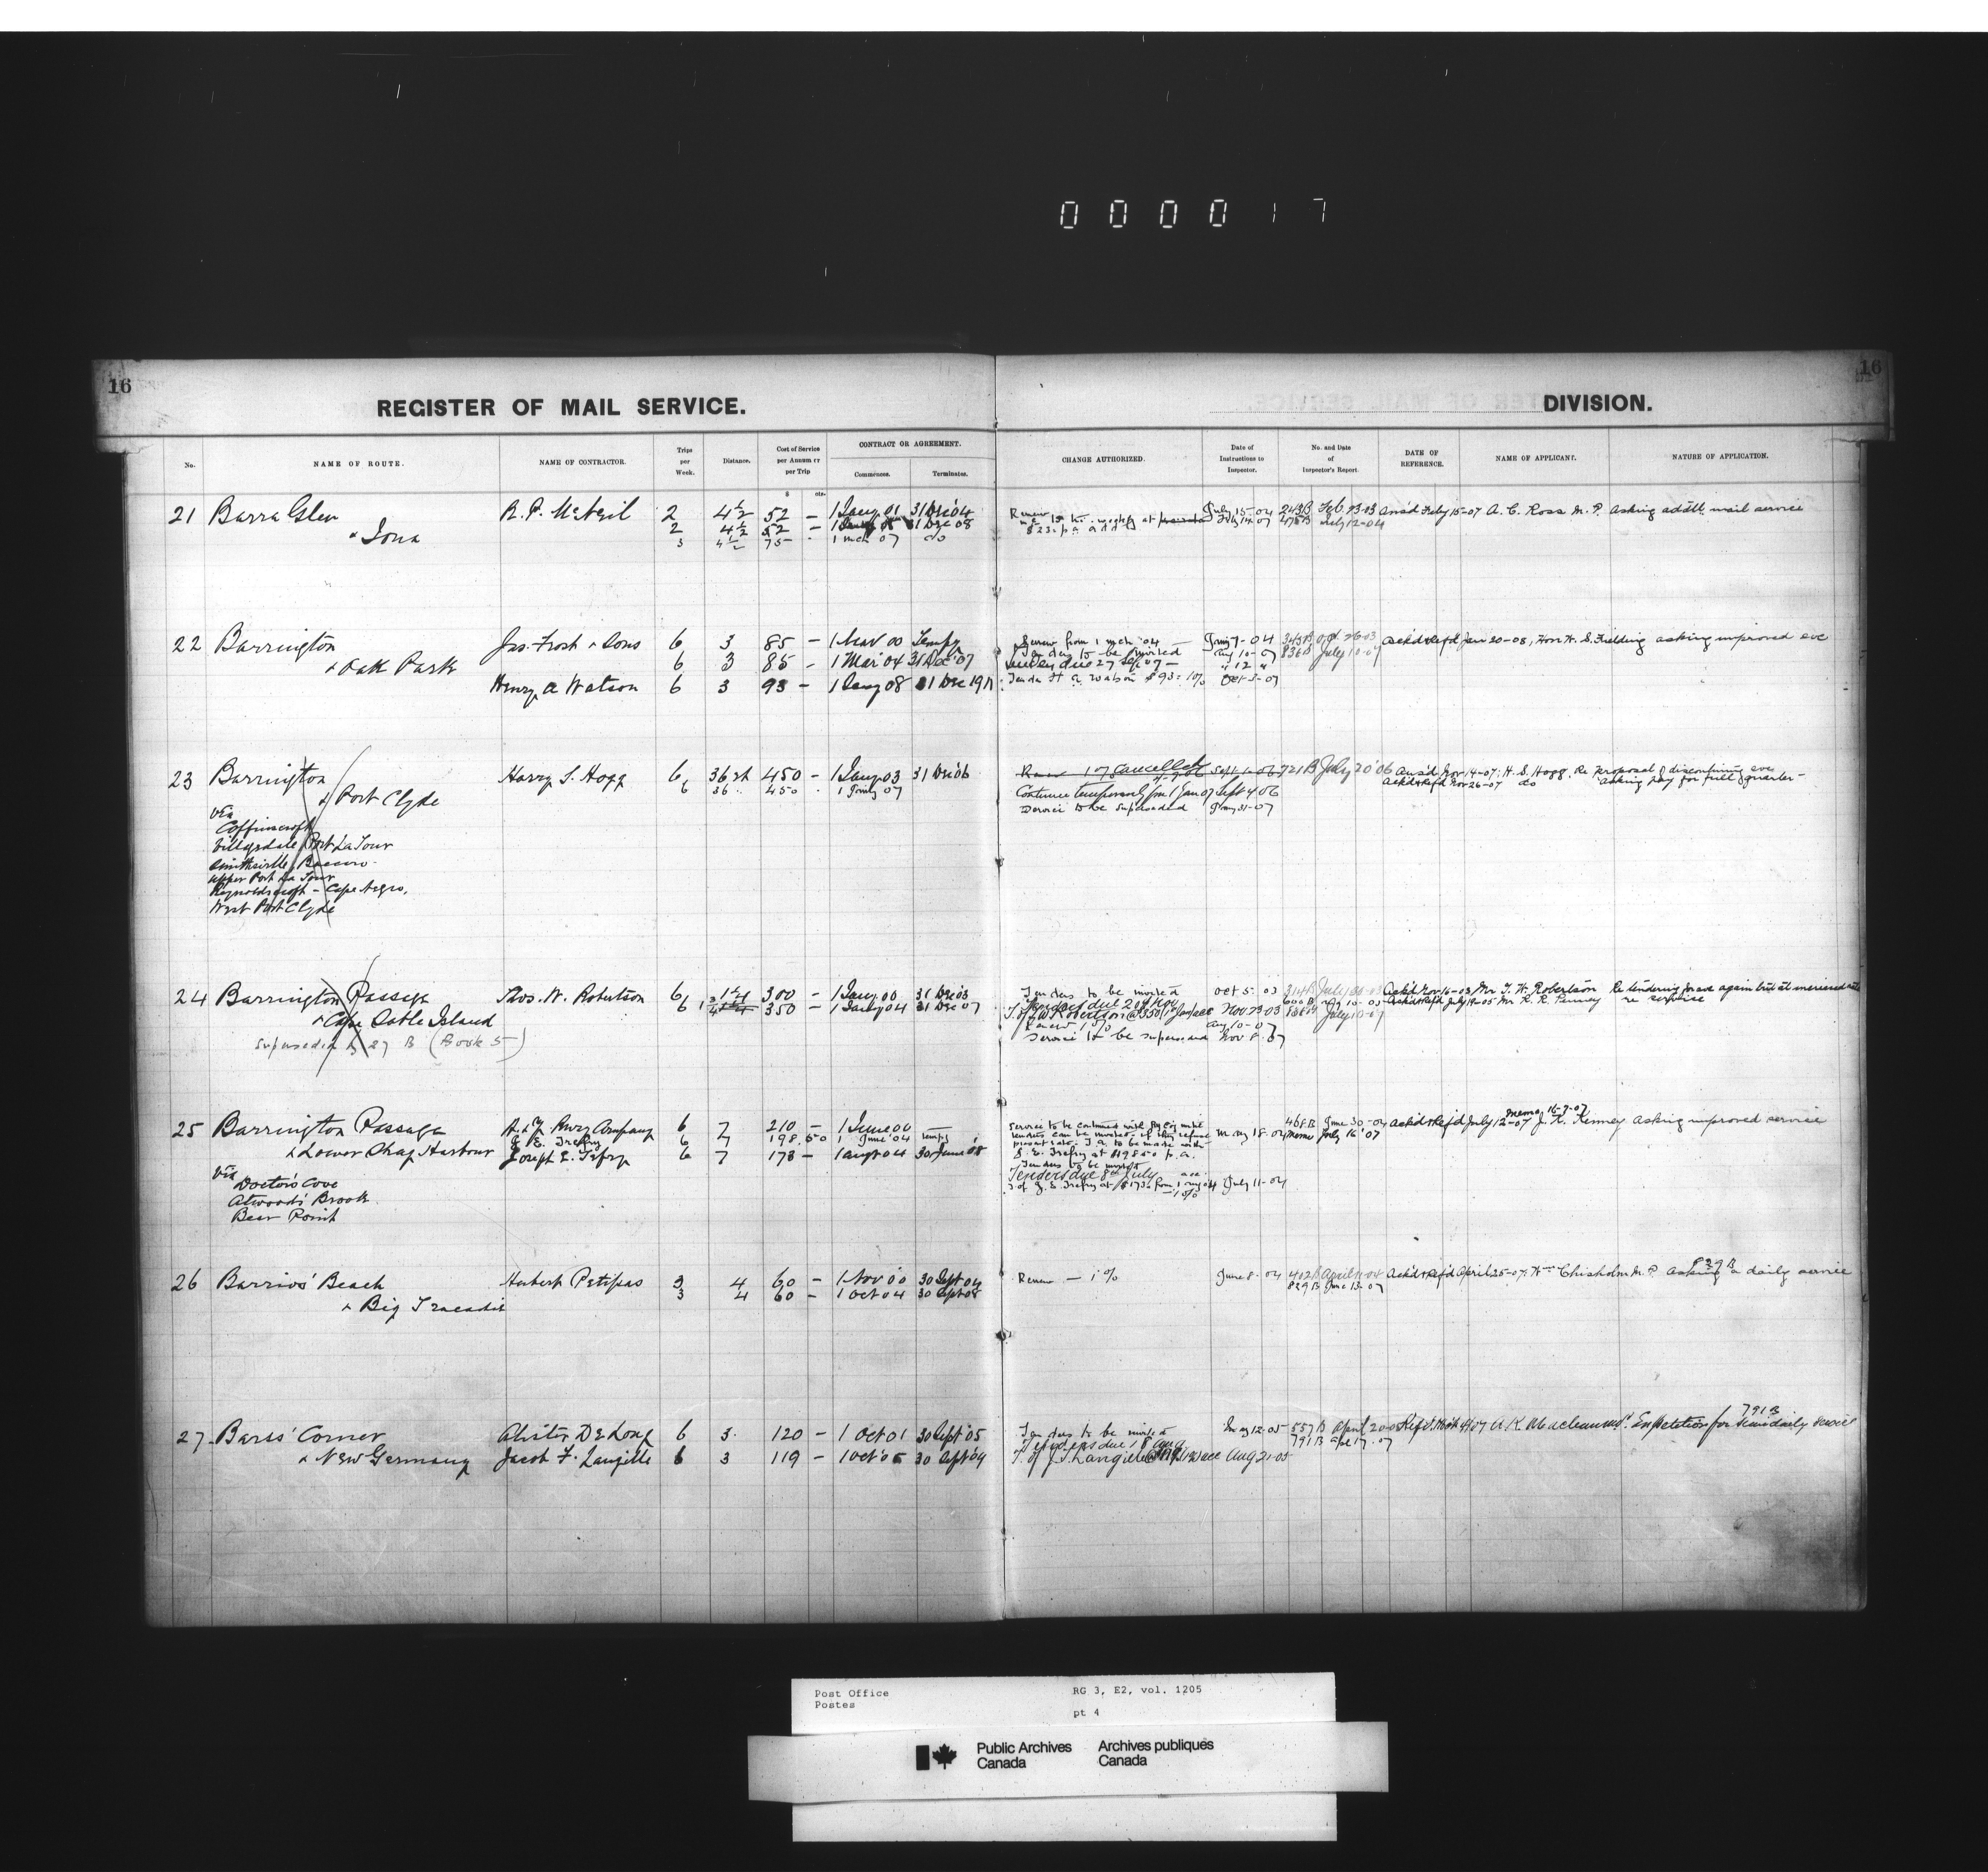 000017
16
REGISTER OF MAIL SERVICE.
DIVISION.
16
No.
NAME OF ROUTE.
NAME OF CONTRACTOR.
Trips per Week.
Distance.
Cost of Service per Annum or per Trip
CONTRACT OR AGREEMENT.
Commences.
Terminates.
CHANGE AUTHORIZED.
Date of Instructions to Inspector.
No. and Date of Inspector's Report.
DATE OF REFERENCE.
NAME OF APPLICANT.
NATURE OF APPLICATION.
$ cts.
21 Barra Glen R. P. McNeil 2 4½ 52 – 1 Jany 01 31 Dec 04 Renew July 15-04 243B Feb 23-03 Ansd Feby 15-07 A. C. Ross M. P. asking addtl mail service
& Iona 2 4½ 52 – 31 Dec 08 Feby 14 07 478B July 12-04
3 4½ 75 – 1 Mch 07 do $23. p.a.
22 Barrington Jas. Frost & Sons 6 3 85 – 1 Nov 00 Tempy Renew from 1 mch 04 Jany 7-04 343B Oct 26-03 Ackd & Refd Jan 20-08, Hon W. S. Fielding asking improved svc
& Oak Park 6 3 85 – 1 Mar 04 31 Dec 07 Tenders to be invited Aug 10-07 836B July 10-07
Tenders due 27 Sep 07 – " 12 "
Henry A Watson 6 3 93 – 1 Jany 08 31 Dec 1911 Tender H A Watson $93 = 1% Oct 3-07
23 Barrington Harry S. Hogg 6 36 rt 450 – 1 Jany 03 31 Dec 06 Renew 1 07 cancelled Sept 1-06 721B July 20'06 Ansd Nov 14-07; H. S. Hogg, Re Proposal of discontinuing svc
& Port Clyde 6 36 450 1 Jany 07 Ackd & Refd Nov 26-07 do asking pay for full quarter-
Continue temporarily fm 1 Jan 07 Sept 4 06
Service to be superseded Jany 31-07
via
Coffinscroft
Villagedale Port La Tour
Smithsville Baccaro
Upper Port La Tour
Reynoldscroft – Cape Negro,
West Port Clyde
24 Barrington Passage Thos. W. Robertson 6 300 – 1 Jany 00 31 Dec 03 Tenders to be invited Oct 5-03 314B July Ackd Nov 16-03 Mr T. W. Robertson Re tendering for svc again but at increased rate
& Cape Sable Island 6 350 – 1 Jany 04 31 Dec 07 Tenders due 20 Nov 600B Ackd & Refd July 19-05 Mr R. R. Kenney re service
Nov 23-03 838B July 10-07
Superseded by 27 B (Book 5) Renew 1% Aug 10-07
Service to be superseded Nov 8-07
25 Barrington Passage H. & Y. Rwy Company 6 7 210 – 1 June 00
& Lower Shag Harbour J. E. Trefry 6 7 198.50 1 June '04 Tempy
Joseph E. Trefry 6 7 173 – 1 Augt 04 30 June 08
Service to be continued with Ry Co until
tenders can be invited – if they refuse May 18-04
present rate. T. A. to be made with
J. E. Trefry at $198.50 p.a.
Tenders to be invited
Tenders due 8th July
T of J. E. Trefry at $173. from 1 Aug 04 July 11-04
468B June 30-04 Ackd & Refd July 12-07 J. K. Kenney asking improved service
memo July 16 '07 memo 16-7-07
via Doctor's Cove
Atwood's Brook
Bear Point
26 Barrios' Beach Hubert Petipas 3 4 60 – 1 Nov 00 30 Sept 04 Renew – 1% June 8-04 402B April 11-04 Ackd & Refd April 25-07; Wm Chisholm M. P. asking a daily service
& Big Tracadie 3 4 60 – 1 Oct 04 30 Sept 08 829B June 13-07 829B
27 Barss' Corner Alister DeLong 6 3 120 – 1 Oct 01 30 Sept '05 Tenders to be invited May 12-05 557B April 20-05 A. K. Maclean MP. petition for semi daily service
& New Germany Jacob F. Langille 6 3 119 – 1 Oct '05 30 Sept '09 Tenders due 18 Aug 791B Apl 17-07 791B
T. of J. F. Langille Aug 21-05
Post Office
Postes
RG 3, E2, vol. 1205
pt 4
Public Archives Canada
Archives publiques Canada